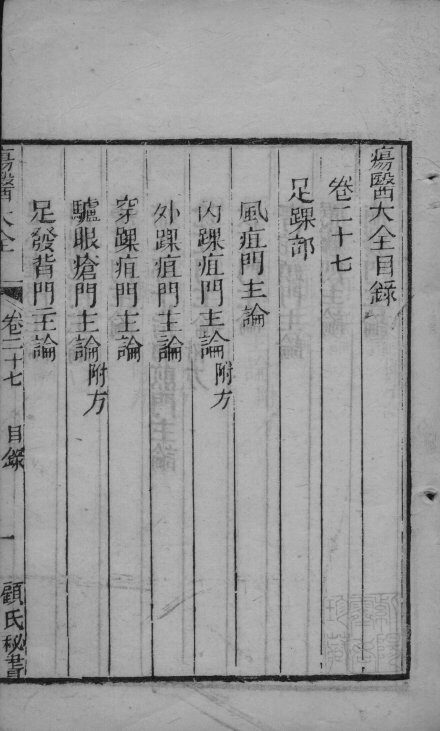 瘍醫大全目錄
卷二十七
足踝部
風疽門主論
內踝疽門主論附方
外踝疽門主論
穿踝疽門主論
驢眼瘡門主論附方
足發背門主論
瘍醫大全
卷二十七
目錄
一
顧氏秘書